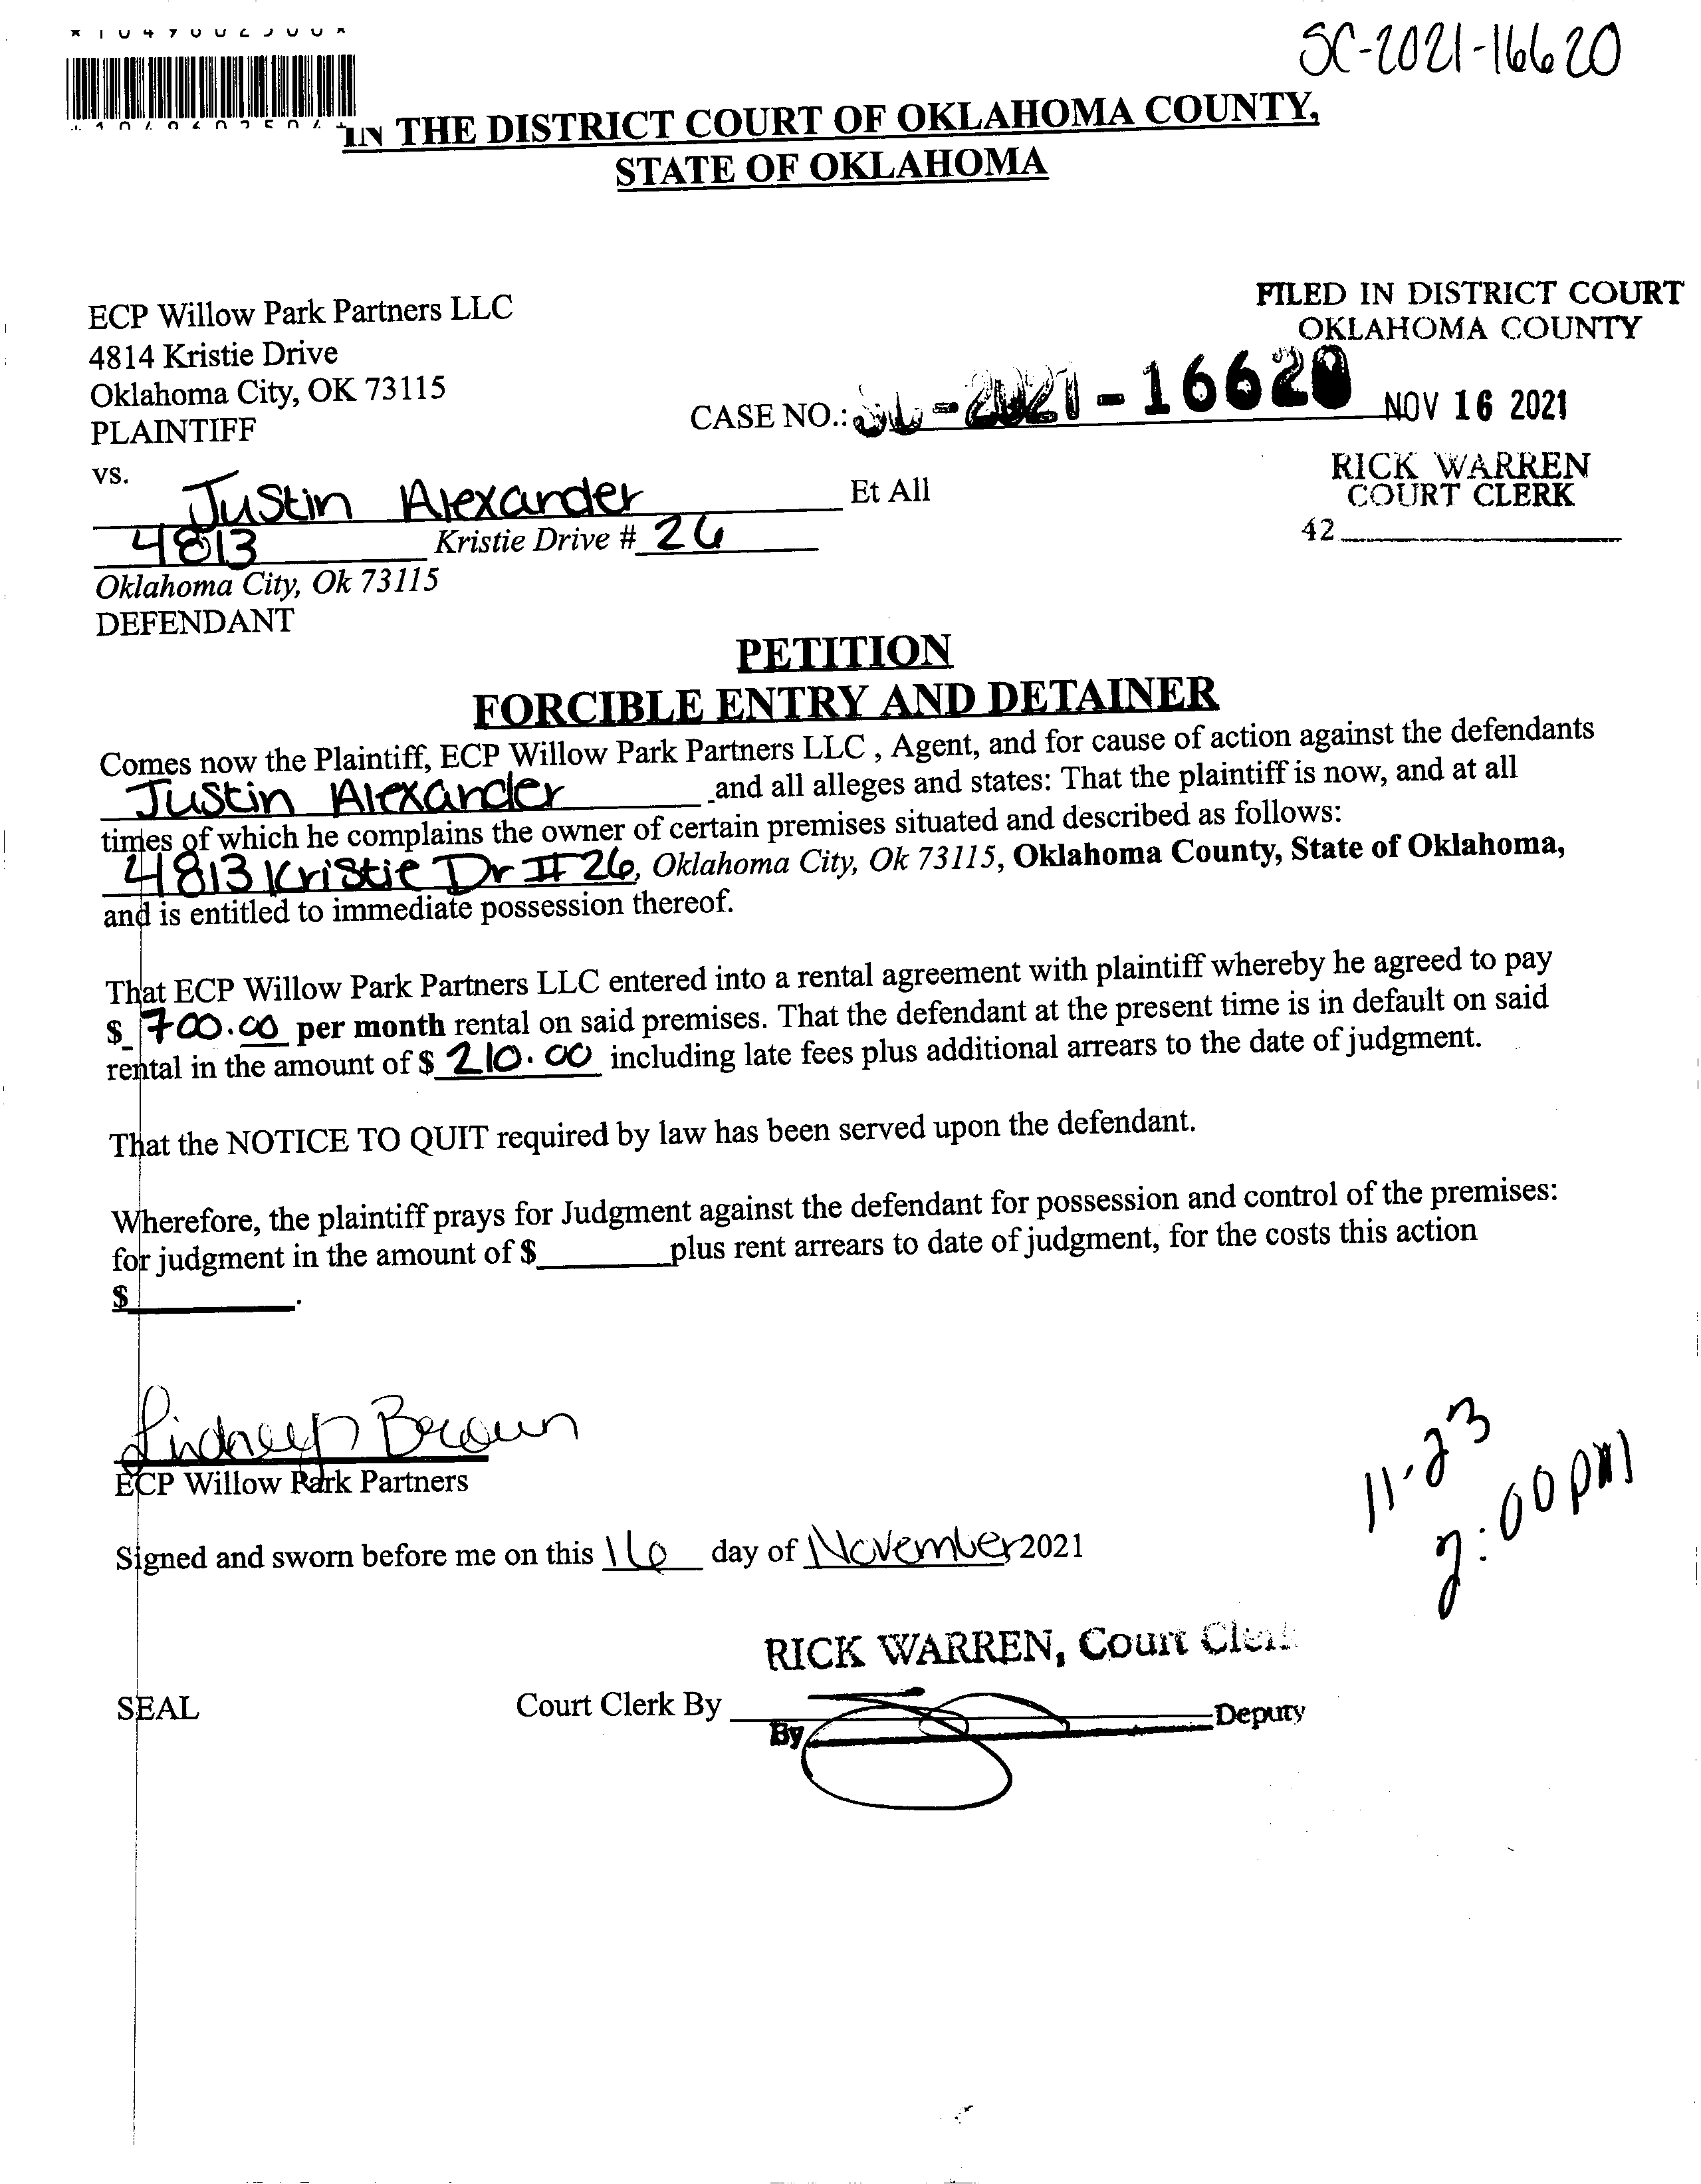 SC-2021-16620
IN THE DISTRICT COURT OF OKLAHOMA COUNTY,
STATE OF OKLAHOMA
ECP Willow Park Partners LLC
4814 Kristie Drive
Oklahoma City, OK 73115
PLAINTIFF
FILED IN DISTRICT COURT
OKLAHOMA COUNTY
CASE NO.: SC-2021-16620
NOV 16 2021
RICK WARREN
COURT CLERK
42
vs.
Justin Alexander Et All
4813 Kristie Drive # 26
Oklahoma City, Ok 73115
DEFENDANT
PETITION
FORCIBLE ENTRY AND DETAINER
Comes now the Plaintiff, ECP Willow Park Partners LLC , Agent, and for cause of action against the defendants
Justin Alexander and all alleges and states: That the plaintiff is now, and at all
times of which he complains the owner of certain premises situated and described as follows:
4813 Kristie Dr # 26, Oklahoma City, Ok 73115, Oklahoma County, State of Oklahoma,
and is entitled to immediate possession thereof.
That ECP Willow Park Partners LLC entered into a rental agreement with plaintiff whereby he agreed to pay
$ 700.00 per month rental on said premises. That the defendant at the present time is in default on said
rental in the amount of $ 210.00 including late fees plus additional arrears to the date of judgment.
That the NOTICE TO QUIT required by law has been served upon the defendant.
Wherefore, the plaintiff prays for Judgment against the defendant for possession and control of the premises:
for judgment in the amount of $______plus rent arrears to date of judgment, for the costs this action
$______.
Brown
ECP Willow Park Partners
11-23
2:00 PM
Signed and sworn before me on this 16 day of November 2021
RICK WARREN, Court Clerk
SEAL Court Clerk By
By Deputy